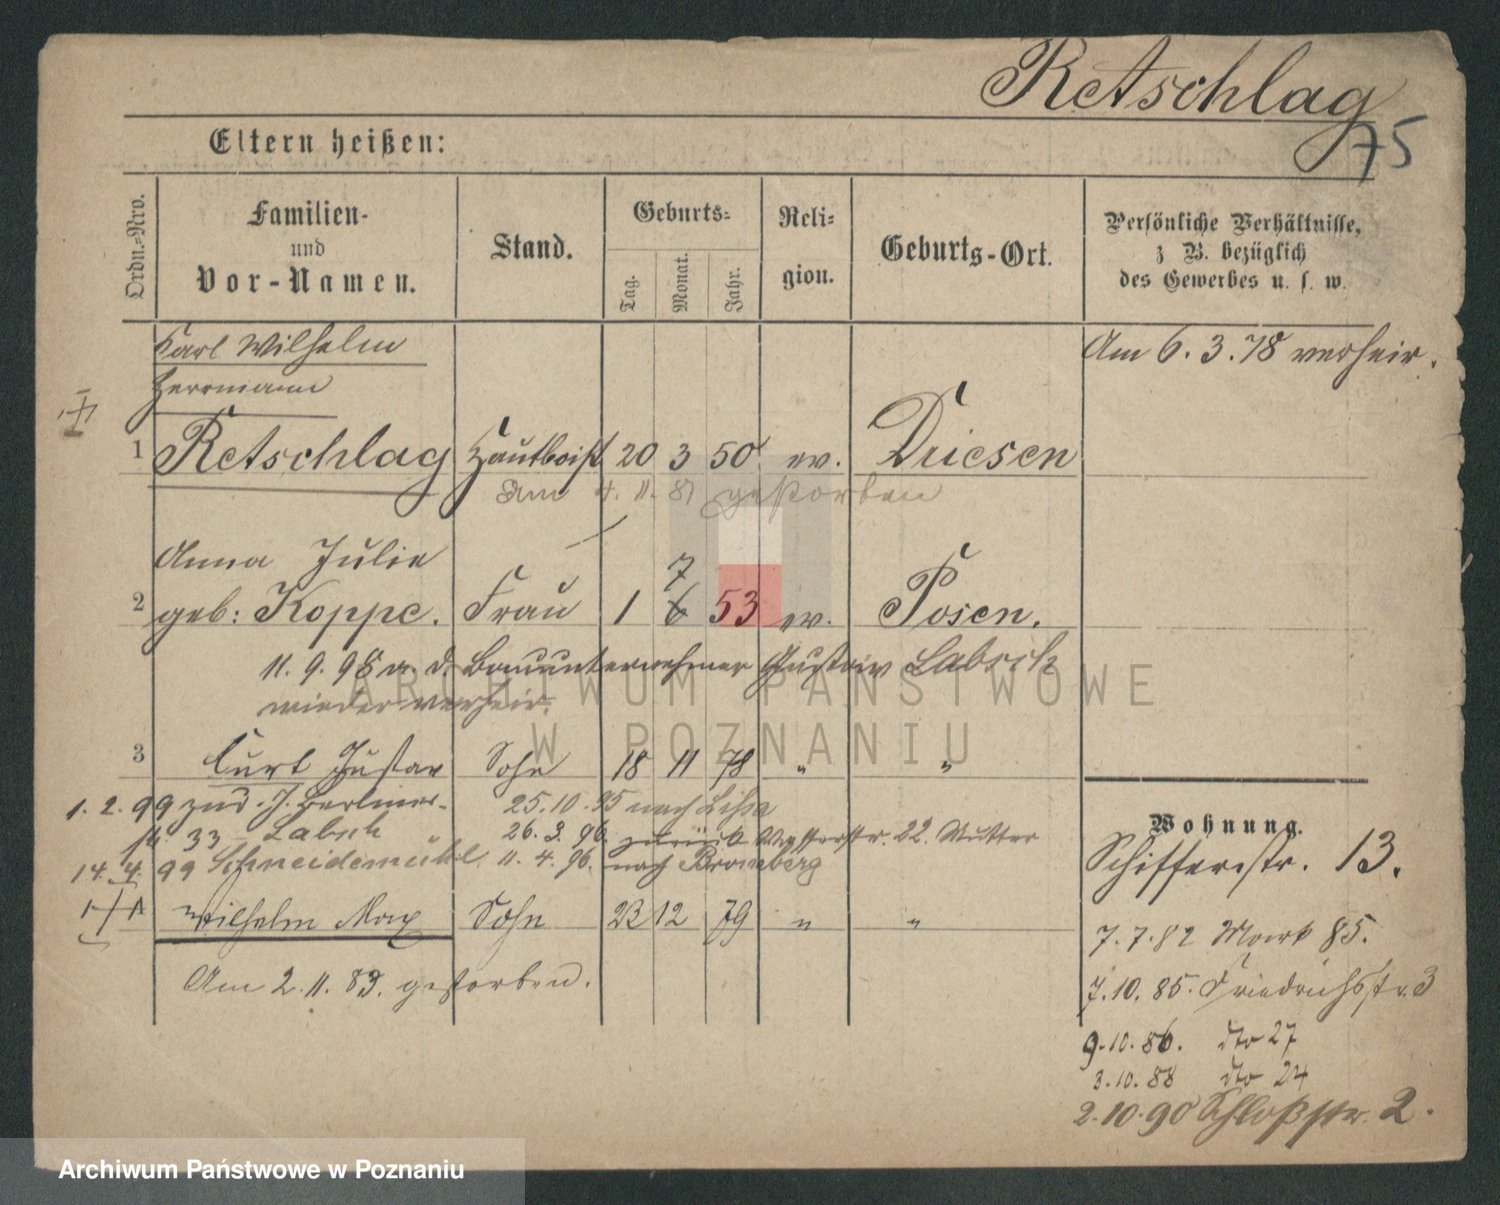 Retschlag
75
Eltern heißen:
Ordn.-Nro.
Familien- und Vor-Namen.
Stand.
Geburts-
Tag. Monat. Jahr.
Reli- gion.
Geburts-Ort.
Persönliche Verhältnisse, z B. bezüglich des Gewerbes u. s. w.
Karl Wilhelm
Herrmann
Am 6.3.78 verheir.
1 Retschlag Hautboist 20 3 50 ev. Driesen
Am 4. 11. 81 gestorben
Anna Julie
7
2 geb: Koppe. Frau 1 6 53 ev. Posen.
11. 9. 98 a. d. Bauunternehmer Gustav Labsch
wieder verheir.
3 Curt Gustav Sohn 18 11 78 " "
1. 2. 99 zur. J. Berliner- 25.10.95 nach Lissa
str 33 Labsch " 26. 3. 96. zurück Wasserstr. 22. Mutter
14. 4. 99 Schneidemühl. 11. 4. 96. nach Bromberg
Wilhelm Max Sohn 23 12 79 " "
Am 2. 11. 83. gestorben.
Wohnung.
Schifferstr. 13.
7. 7. 82 Markt 85.
7.10. 85. Friedrichsstr. 3
9.10. 86. dto 27
3.10. 88 dto 24
2.10.90 Schloßstr. 2.
ARCHIWUM PAŃSTWOWE
W POZNANIU
Archiwum Państwowe w Poznaniu